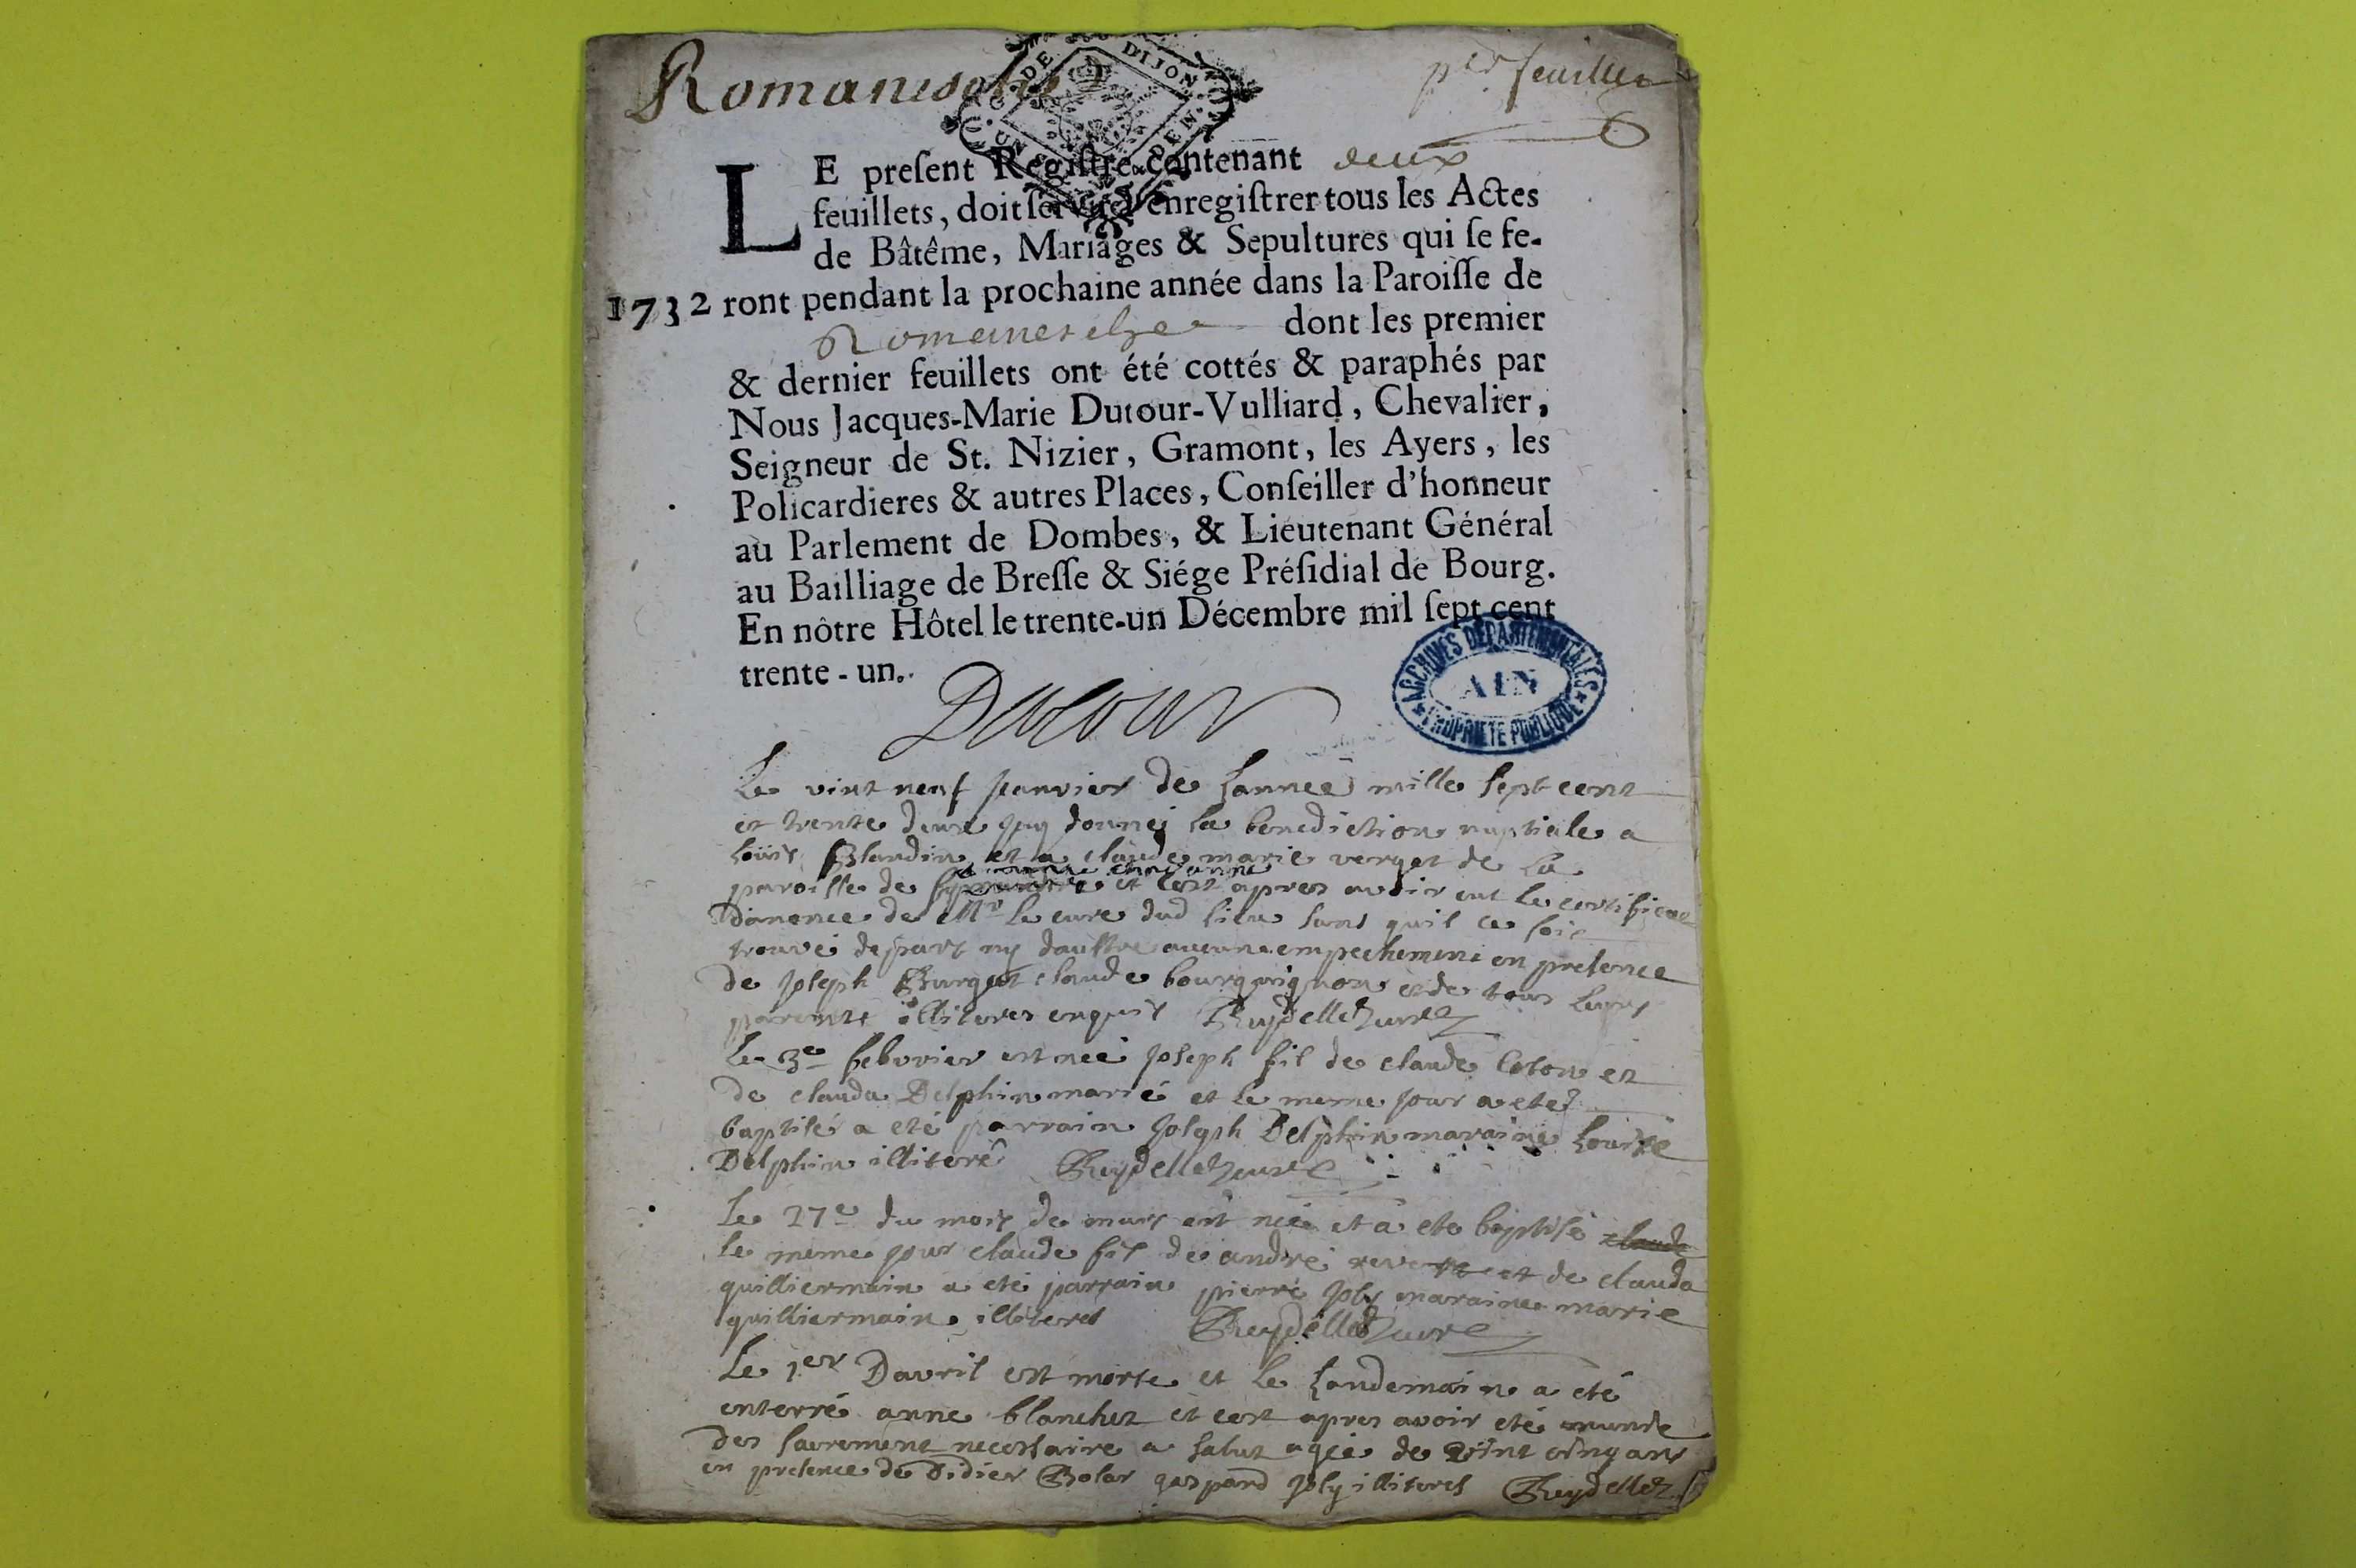 Romanesche
per feuillet
G. DE DIJON
LE preſent Regiſtre contenant deux
feuillets, doit ſervir d'enregiſtrer tous les Actes
de Bâtême, Mariages & Sepultures qui ſe fe-
1732 ront pendant la prochaine année dans la Paroiſſe de
Romanesche dont les premier
& dernier feuillets ont été cottés & paraphés par
Nous Jacques-Marie Dutour-Vulliard, Chevalier,
Seigneur de St. Nizier, Gramont, les Ayers, les
Policardieres & autres Places, Conſeiller d'honneur
au Parlement de Dombes, & Lieutenant Général
au Bailliage de Breſſe & Siége Préſidial de Bourg.
En nôtre Hôtel le trente-un Décembre mil ſept cent
trente-un.
Dutour
ARCHIVES DEPARTEMENTALES
AIN
PROPRIETE PUBLIQUE
Le vint neuf janvier de lannee mille sept cent
et trente deux jay donné la benediction nuptiale a
loüis Blandin et a claude marie verget de la
paroisse de et cest apres avoir eut le certificat
danonce de Mr le cure dud lieu sans quil ce soit
trouvé depart ny daultre aucune empechement en presence
de joseph Burget claude bourguignon et de tous leurs
parents illiteres enquis Reydellet curé
Le 3e febvrier est neé joseph fil de claude et
de clauda Delphin marié et le meme jour a eté
baptisé a eté parrain joseph Delphin maraine Louise
Delphin illiteré Reydellet curé
Le 27e du mois de mars est neé et a ete baptisé claude
le meme jour claude fil de andré et de clauda
guilliermain a eté parrain pierre joly maraine marie
guilliermain illiteres Reydellet curé
Le 1er Davril est morte et le landemain a eté
enterré anne blanchet et cest apres avoir eté munde
des sacrement necessaire a salut ageé de vint cinq ans
en presence de Didier Bolar gaspard joly illiteres Reydellet